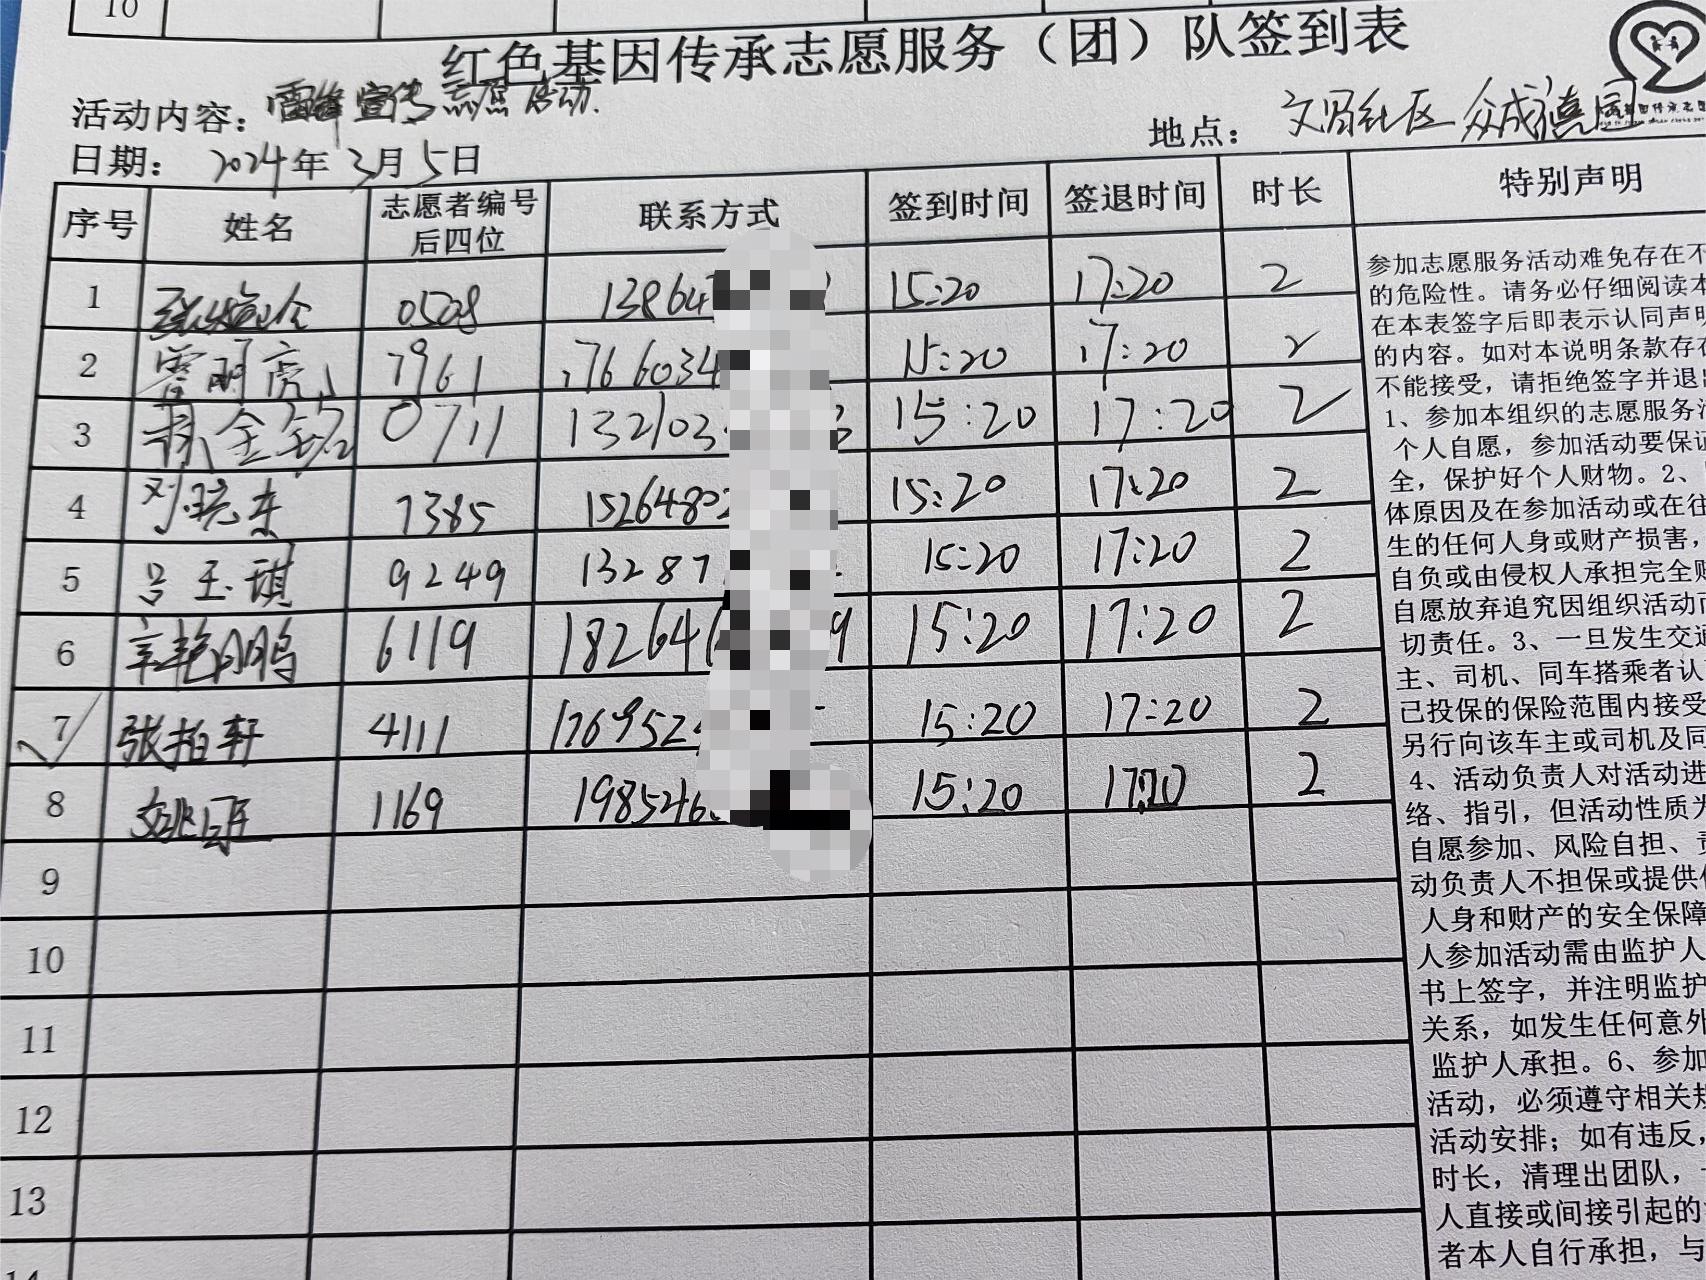 10
红色基因传承志愿服务（团）队签到表
活动内容： 雷锋宣传志愿活动.
地点： 文昌社区 众成德园
日期： 2024年3月5日
序号 姓名 志愿者编号后四位 联系方式 签到时间 签退时间 时长 特别声明
1 0508 13864 15:20 17:20 2
2 7961 1766034 15:20 17:20 2
3 0711 132103 15:20 17:20 2
4 7385 15264802 15:20 17:20 2
5 吕玉琪 9249 13287 15:20 17:20 2
6 6119 18264 9 15:20 17:20 2
7 张柏轩 4111 1769524 15:20 17:20 2
8 1169 1985246 15:20 2
9
10
11
12
13
14
参加志愿服务活动难免存在不
的危险性。请务必仔细阅读本
在本表签字后即表示认同声明
的内容。如对本说明条款存在
不能接受，请拒绝签字并退
1、参加本组织的志愿服务活
个人自愿，参加活动要保证
全，保护好个人财物。2、
体原因及在参加活动或在往
生的任何人身或财产损害，
自负或由侵权人承担完全
自愿放弃追究因组织活动
切责任。3、一旦发生交通
主、司机、同车搭乘者认
己投保的保险范围内接受
另行向该车主或司机及同
4、活动负责人对活动进
络、指引，但活动性质为
自愿参加、风险自担、责
动负责人不担保或提供
人身和财产的安全保障
人参加活动需由监护人
书上签字，并注明监护
关系，如发生任何意外
监护人承担。6、参加
活动，必须遵守相关规
活动安排；如有违反，
时长，清理出团队，
人直接或间接引起的
者本人自行承担，与